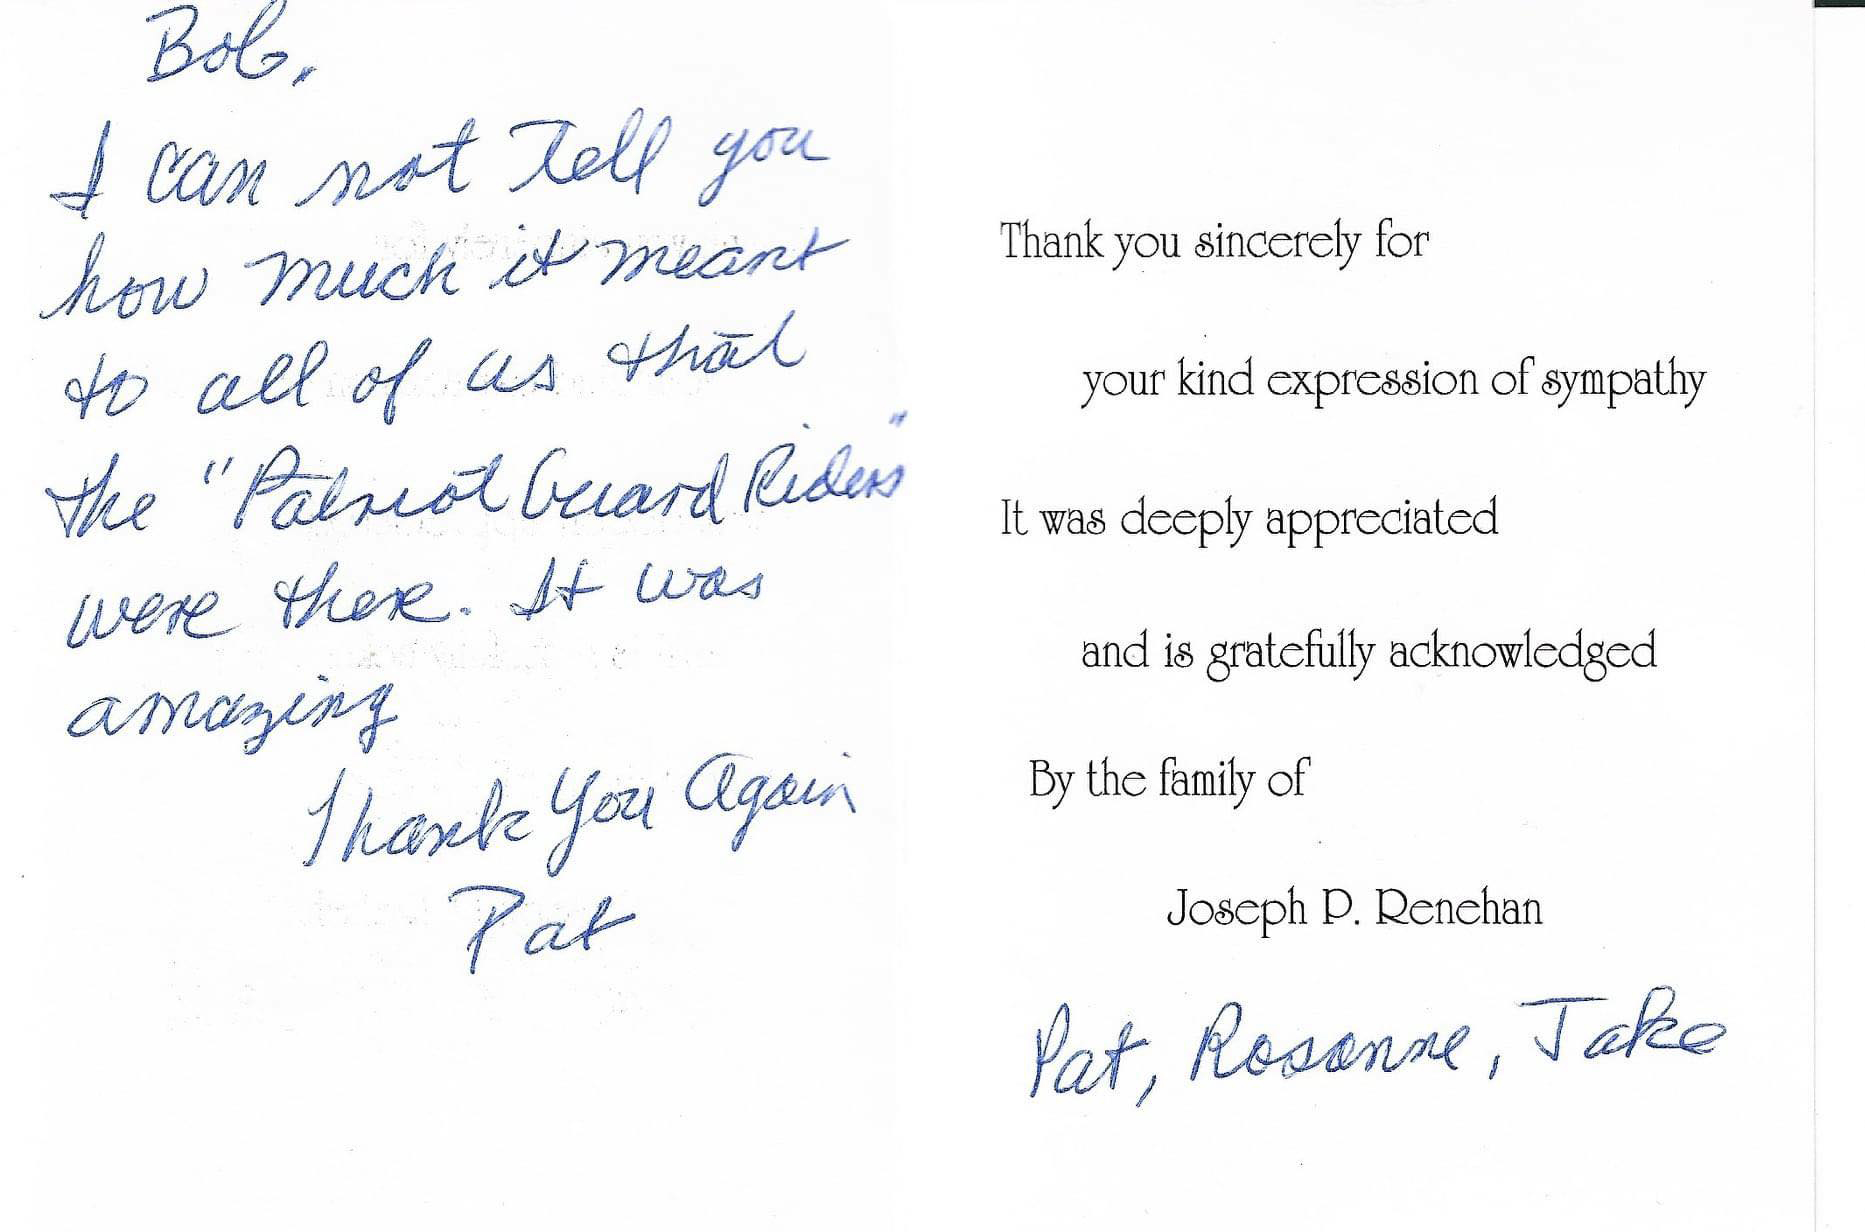 Bob,
I can not tell you
how much it meant
to all of us that
the "Patriot Guard Riders"
were there. It was
amazing
Thank You Again
Pat
Thank you sincerely for
your kind expression of sympathy
It was deeply appreciated
and is gratefully acknowledged
By the family of
Joseph P. Renehan
Pat, Rosanne, Jake